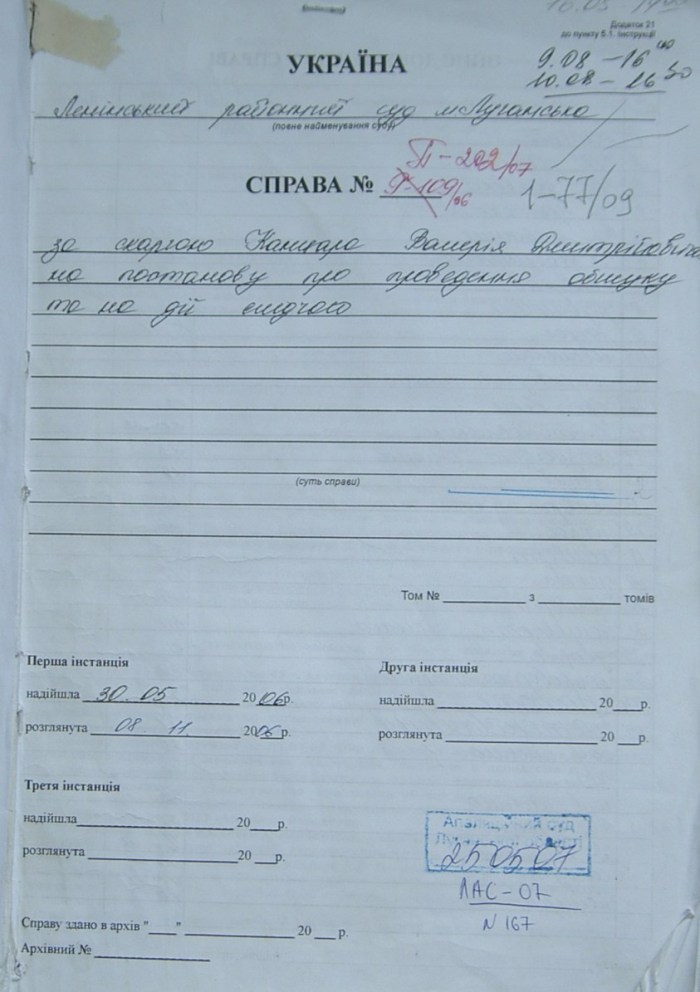 Додаток 21
до пункту 5.1. Інструкції
УКРАЇНА
9.08 – 16 00
10.08 – 16 30
Ленінський районний суд м Луганська
(повне найменування суду)
СПРАВА №
П-202/07
109/06
1-77/09
за скаргою Канцара Валерія Дмитрійовича
на постанову про проведення обшуку
та на дії слідчого
(суть справи)
Том № з томів
Перша інстанція
надійшла 30.05 2006р.
розглянута 08.11. 2006р.
Друга інстанція
надійшла 20 р.
розглянута 20 р.
Третя інстанція
надійшла 20 р.
розглянута 20 р.
Апеляційний суд
250507
ЛАС-07
N 167
Справу здано в архів " " 20 р.
Архівний №